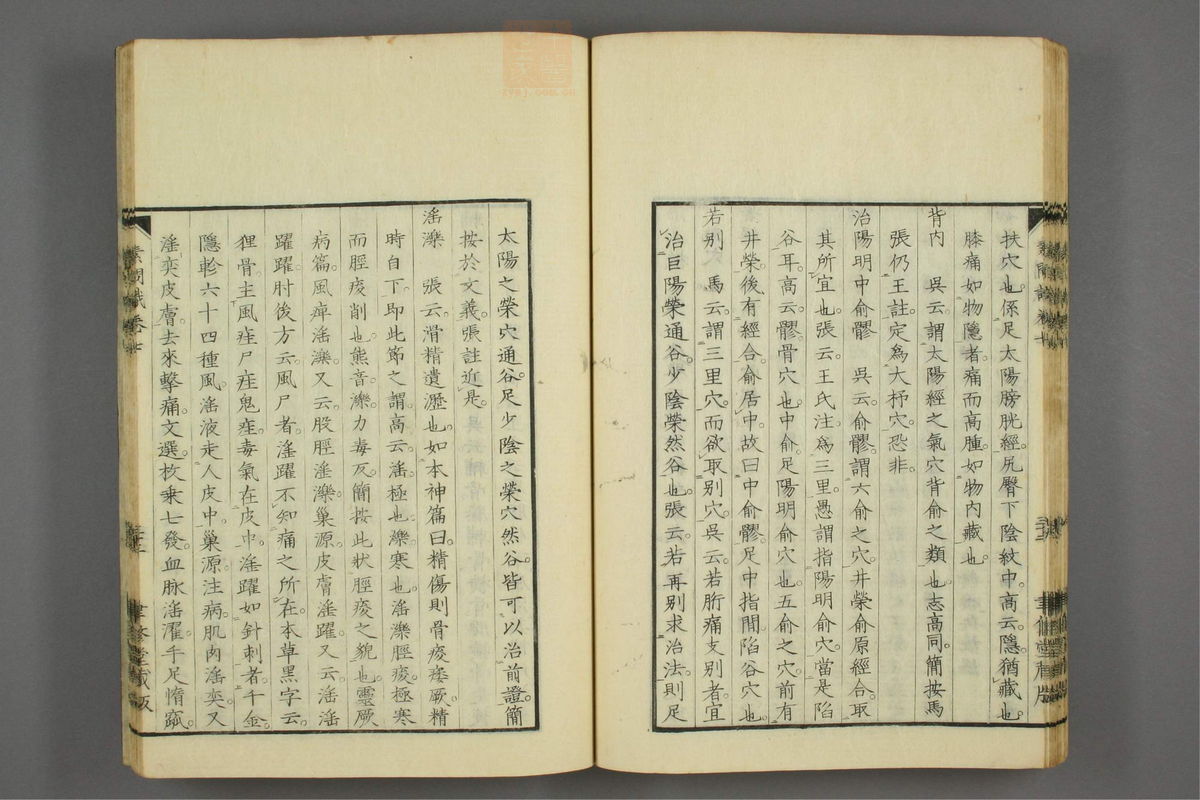 扶穴也。係足太陽膀胱經。尻臀下陰紋中。高云。隱猶藏也。
膝痛如物隱者。痛而高腫。如物内藏也。
背内　吳云。謂太陽經之氣穴。背俞之類也。志高同。簡按馬
張仍王註。定爲大杼穴。恐非。
治陽明中俞髎　吳云。俞髎。謂六俞之穴。井滎俞原經合。取
其所宜也。張云。王氏注爲三里。愚謂指陽明俞穴。當是陷
谷耳。高云。髎。骨穴也。中俞。足陽明俞穴也。五俞之穴。前有
井滎。後有經合。俞居中。故曰中俞髎。足中指間。陷谷穴也。
若別　馬云。謂三里穴。而欲取別穴。吳云。若胻痛支別者。宜
治巨陽滎通谷。少陰滎然谷也。張云。若再別求治法。則足
太陽之滎穴通谷。足少陰之滎穴然谷。皆可以治前證。簡
按於文義。張註近是。
淫濼　張云。滑精遺瀝也。如本神篇曰。精傷則骨痠痿厥。精
時自下。即此節之謂。高云。淫。極也。濼。寒也。淫濼脛痠。極寒
而脛痠削也。熊音。濼。力毒反。簡按此狀脛痠之貌也。靈厥
病篇。風痺淫濼。又云。股脛淫濼。巢源。皮膚淫躍。又云。淫淫
躍躍。肘後方云。風尸者。淫躍不知痛之所在。本草黑字云。
狸骨。主風疰尸疰鬼疰。毒氣在皮中。淫躍如針刺者。千金。
隱軫六十四種風。淫液走人皮中。巢源。注病。肌肉淫奕。又
淫奕皮膚。去來擊痛。文選。枚乘七發。血脉淫濯。手足惰窳。
素問識卷七
聿修堂藏版